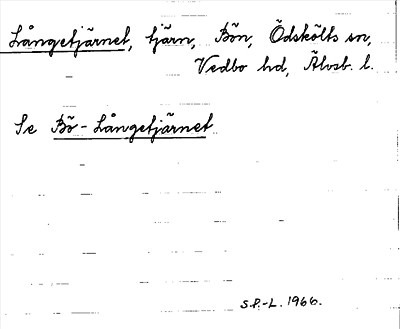 Långetjärnet, tjärn, Bön, Ödskölts sn,
Vedbo hd, Älvsb. l.
Se Bö-Långetjärnet
S.P.-L. 1966.